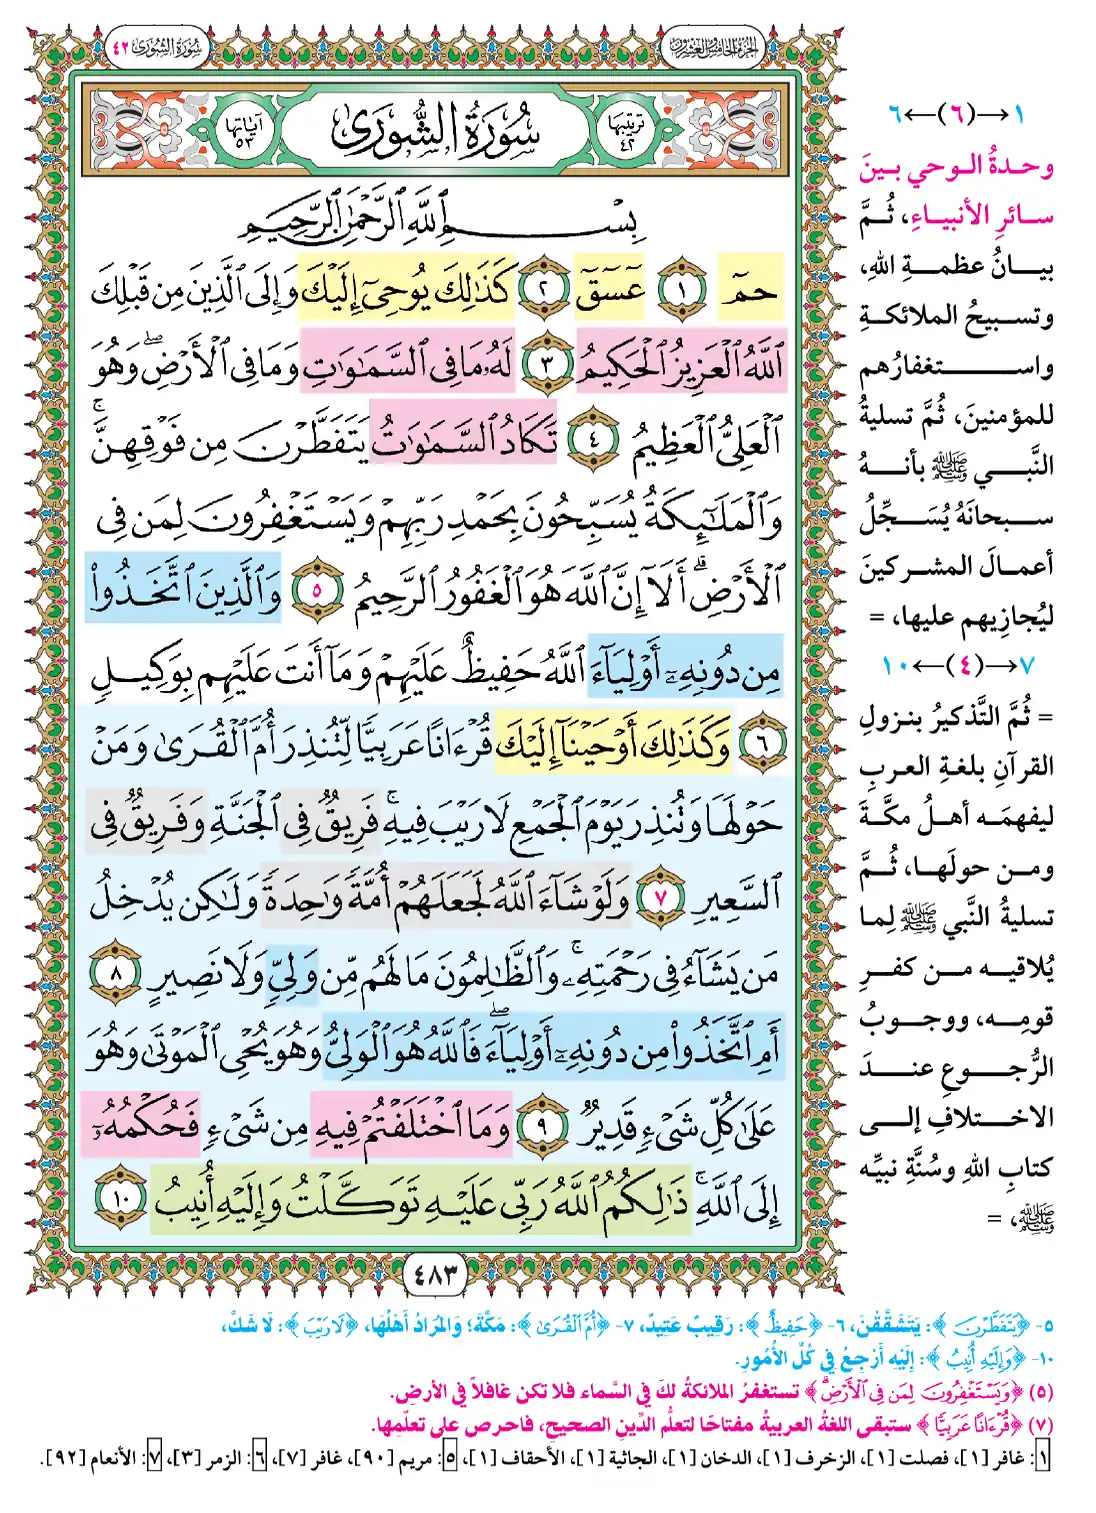 الجزء الخامس والعشرون
سورة الشورى ٤٢
ترتيبها ٤٢
سُورَةُ الشُّورَىٰ
آياتها ٥٣
بِسْمِ ٱللَّهِ ٱلرَّحْمَٰنِ ٱلرَّحِيمِ
حمٓ ١ عٓسٓقٓ ٢ كَذَٰلِكَ يُوحِىٓ إِلَيْكَ وَإِلَى ٱلَّذِينَ مِن قَبْلِكَ
ٱللَّهُ ٱلْعَزِيزُ ٱلْحَكِيمُ ٣ لَهُۥ مَا فِى ٱلسَّمَٰوَٰتِ وَمَا فِى ٱلْأَرْضِ ۖ وَهُوَ
ٱلْعَلِىُّ ٱلْعَظِيمُ ٤ تَكَادُ ٱلسَّمَٰوَٰتُ يَتَفَطَّرْنَ مِن فَوْقِهِنَّ ۚ
وَٱلْمَلَٰٓئِكَةُ يُسَبِّحُونَ بِحَمْدِ رَبِّهِمْ وَيَسْتَغْفِرُونَ لِمَن فِى
ٱلْأَرْضِ ۗ أَلَآ إِنَّ ٱللَّهَ هُوَ ٱلْغَفُورُ ٱلرَّحِيمُ ٥ وَٱلَّذِينَ ٱتَّخَذُوا۟
مِن دُونِهِۦٓ أَوْلِيَآءَ ٱللَّهُ حَفِيظٌ عَلَيْهِمْ وَمَآ أَنتَ عَلَيْهِم بِوَكِيلٍ
٦ وَكَذَٰلِكَ أَوْحَيْنَآ إِلَيْكَ قُرْءَانًا عَرَبِيًّا لِّتُنذِرَ أُمَّ ٱلْقُرَىٰ وَمَنْ
حَوْلَهَا وَتُنذِرَ يَوْمَ ٱلْجَمْعِ لَا رَيْبَ فِيهِ ۚ فَرِيقٌ فِى ٱلْجَنَّةِ وَفَرِيقٌ فِى
ٱلسَّعِيرِ ٧ وَلَوْ شَآءَ ٱللَّهُ لَجَعَلَهُمْ أُمَّةً وَٰحِدَةً وَلَٰكِن يُدْخِلُ
مَن يَشَآءُ فِى رَحْمَتِهِۦ ۚ وَٱلظَّٰلِمُونَ مَا لَهُم مِّن وَلِىٍّ وَلَا نَصِيرٍ ٨
أَمِ ٱتَّخَذُوا۟ مِن دُونِهِۦٓ أَوْلِيَآءَ ۖ فَٱللَّهُ هُوَ ٱلْوَلِىُّ وَهُوَ يُحْىِ ٱلْمَوْتَىٰ وَهُوَ
عَلَىٰ كُلِّ شَىْءٍ قَدِيرٌ ٩ وَمَا ٱخْتَلَفْتُمْ فِيهِ مِن شَىْءٍ فَحُكْمُهُۥٓ
إِلَى ٱللَّهِ ۚ ذَٰلِكُمُ ٱللَّهُ رَبِّى عَلَيْهِ تَوَكَّلْتُ وَإِلَيْهِ أُنِيبُ ١٠
٤٨٣
١→(٦)←٦
وحدةُ الوحي بينَ
سائرِ الأنبياءِ، ثُمَّ
بيانُ عظمةِ اللهِ،
وتسبيحُ الملائكةِ
واستغفارُهم
للمؤمنينَ، ثُمَّ تسليةُ
النَّبي ﷺ بأنهُ
سبحانَهُ يُسَجِّلُ
أعمالَ المشركينَ
ليُجازِيهم عليها، =
٧→(٤)←١٠
= ثُمَّ التَّذكيرُ بنزولِ
القرآنِ بلغةِ العربِ
ليفهمَه أهلُ مكَّةَ
ومن حولَها، ثُمَّ
تسليةُ النَّبي ﷺ لِما
يُلاقيه من كفرِ
قومِه، ووجوبُ
الرُّجوعِ عندَ
الاختلافِ إلى
كتابِ اللهِ وسُنَّةِ نبيِّه
ﷺ، =
٥- ﴿يَتَفَطَّرْنَ﴾: يَتَشَقَّقْنَ، ٦- ﴿حَفِيظٌ﴾: رَقِيبٌ عَتِيدٌ، ٧- ﴿أُمَّ ٱلْقُرَىٰ﴾: مَكَّةَ؛ وَالمُرَادُ أَهْلُهَا، ﴿لَا رَيْبَ﴾: لَا شَكَّ،
١٠- ﴿وَإِلَيْهِ أُنِيبُ﴾: إِلَيْهِ أَرْجِعُ فِي كُلِّ الأُمُورِ.
(٥) ﴿وَيَسْتَغْفِرُونَ لِمَن فِى ٱلْأَرْضِ﴾ تستغفرُ الملائكةُ لكَ في السَّماء فلا تكن غافلاً في الأرضِ.
(٧) ﴿قُرْءَانًا عَرَبِيًّا﴾ ستبقى اللغةُ العربيةُ مفتاحًا لتعلُّم الدِّينِ الصحيحِ، فاحرص على تعلُّمِها.
١: غافر [١]، فصلت [١]، الزخرف [١]، الدخان [١]، الجاثية [١]، الأحقاف [١]، ٥: مريم [٩٠]، غافر [٧]، ٦: الزمر [٣]، ٧: الأنعام [٩٢].